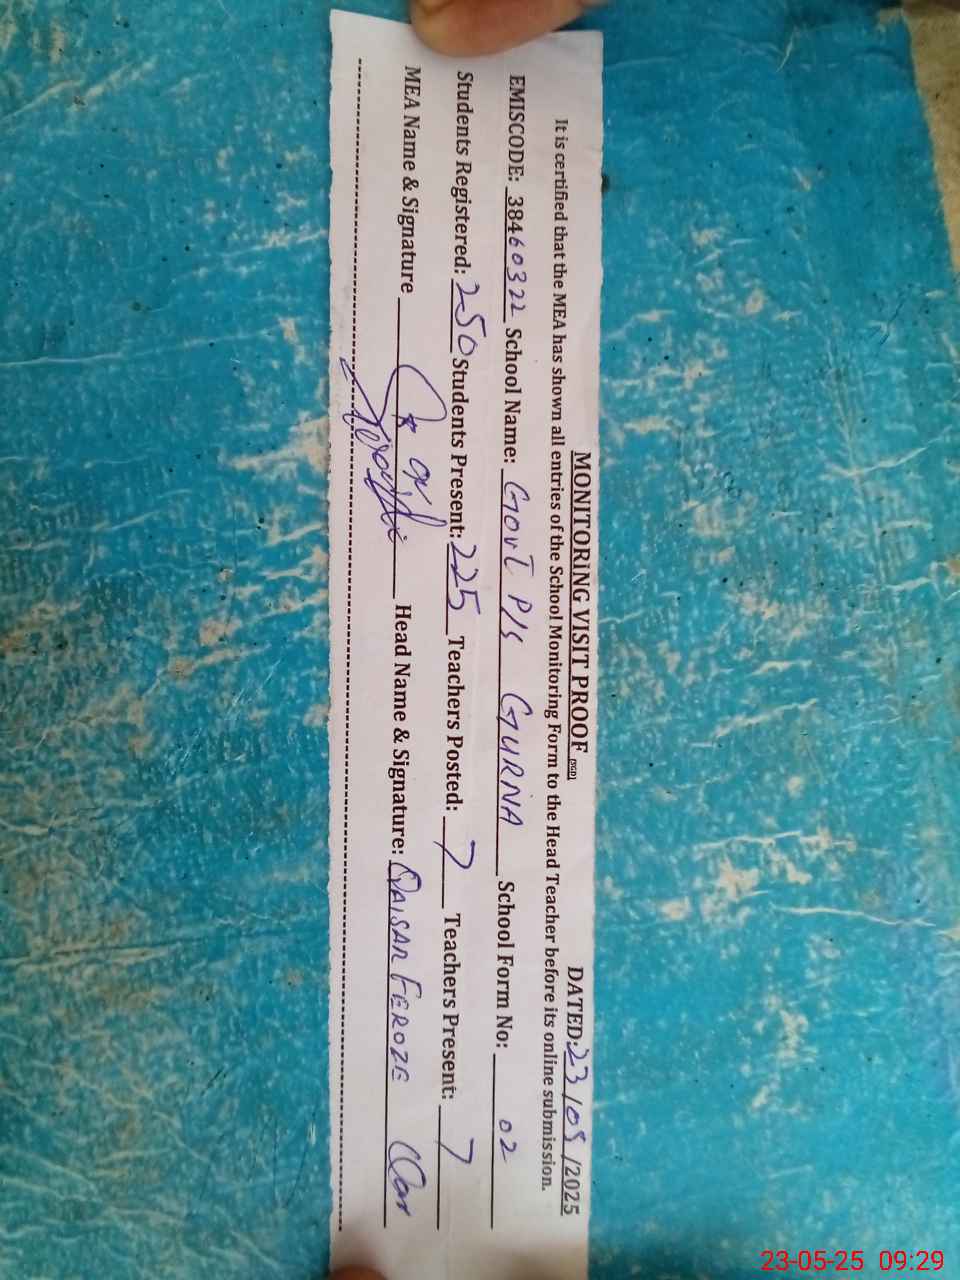 MONITORING VISIT PROOF (SGD) DATED: 23/05/2025
It is certified that the MEA has shown all entries of the School Monitoring Form to the Head Teacher before its online submission.
EMISCODE: 38460322 School Name: Govt P/S GURNA School Form No: 02
Students Registered: 250 Students Present: 225 Teachers Posted: 7 Teachers Present: 7
MEA Name & Signature Head Name & Signature: QAISAR FEROZE
23-05-25 09:29